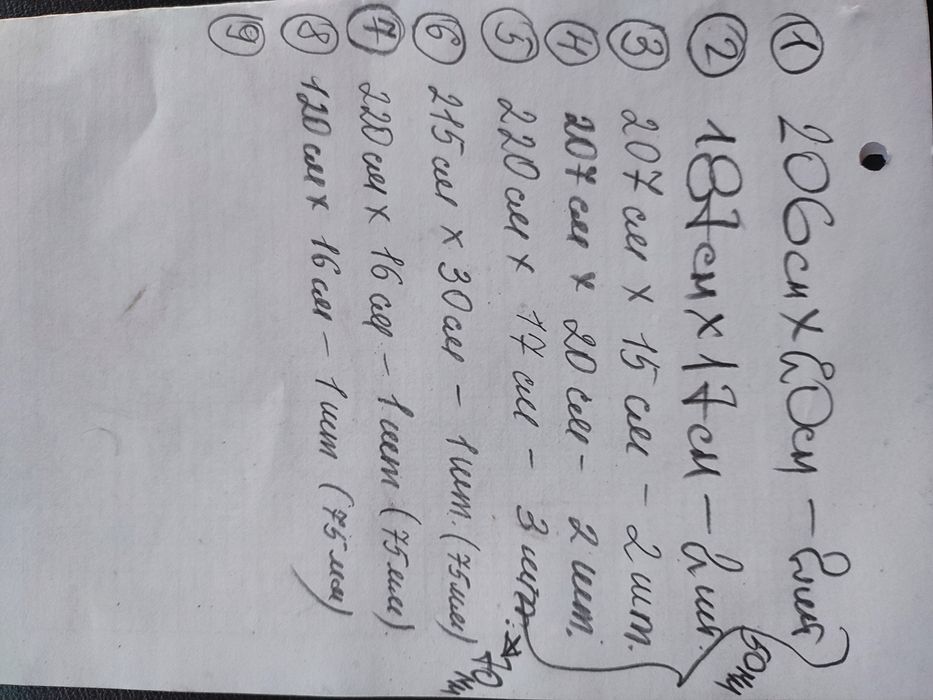 ① 206см х 20см – 2шт
② 187см х 17см – 2шт.
③ 207см х 15см – 2шт.
④ 207см х 20см – 2шт.
⑤ 220см х 17см – 3шт.
⑥ 215см х 30см – 1шт. (75мм)
⑦ 220см х 16см – 1шт (75мм).
⑧ 120см х 16см – 1шт (75мм)
⑨